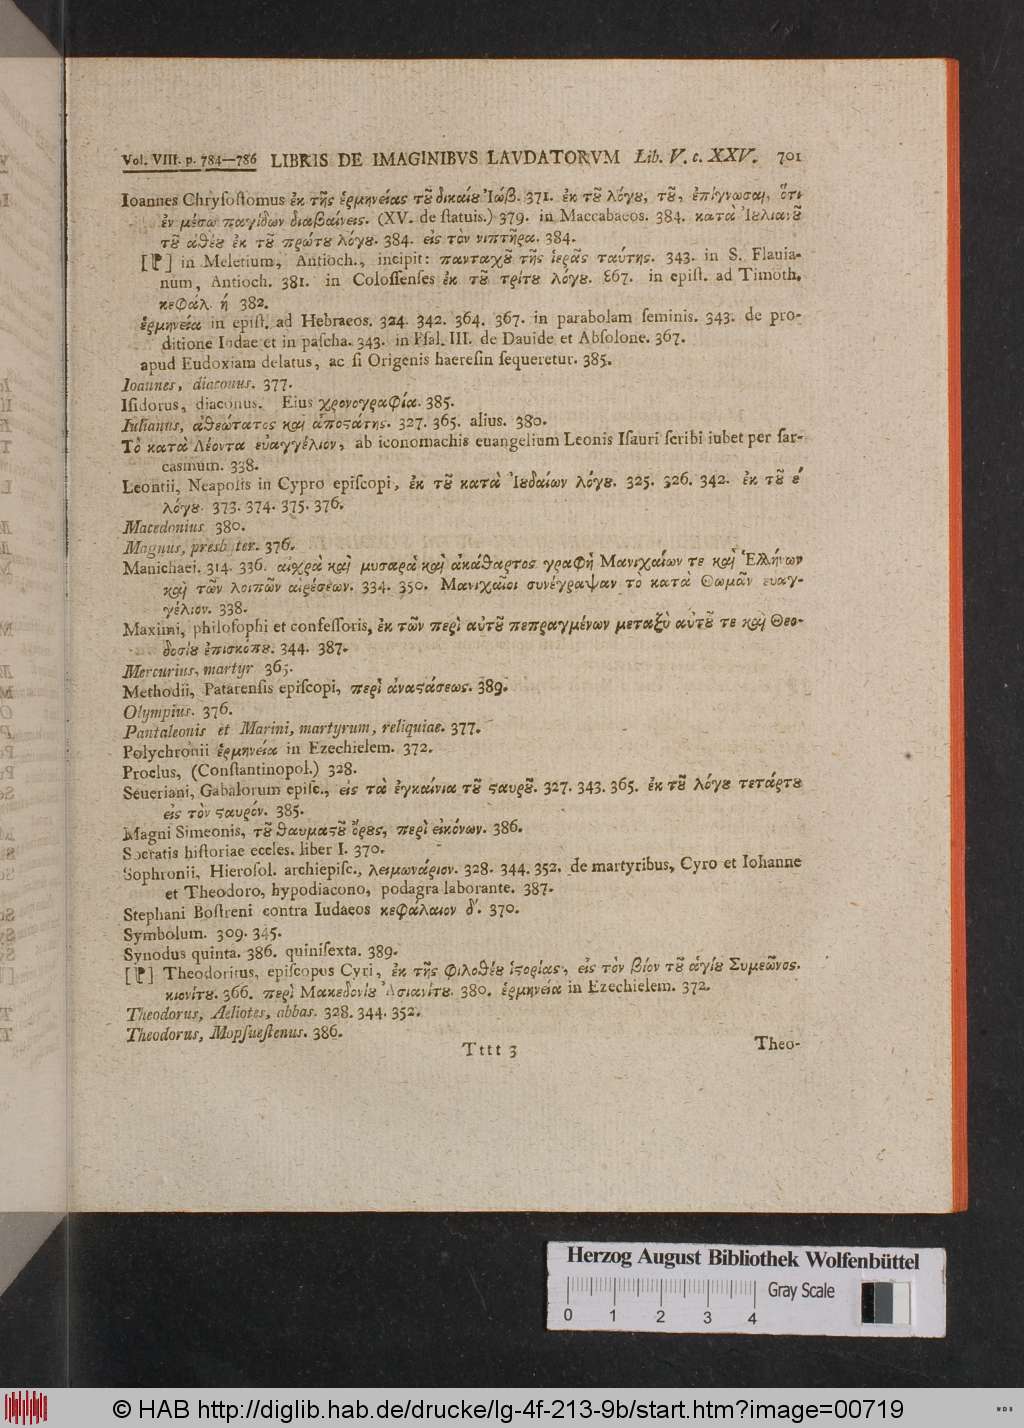 Vol. VIII. p. 784—786 LIBRIS DE IMAGINIBVS LAVDATORVM Lib. V. c. XXV. 701
Ioannes Chryſoſtomus ἐκ τῆς ἑρμηνείας τȣ͂ δικαίȣ Ἰώβ. 371. ἐκ τȣ͂ λόγȣ, τȣ͂, ἐπίγνωσαι, ὅτι
ἐν μέσω παγίδων διαβαίνεις. (XV. de ſtatuis.) 379. in Maccabaeos. 384. κατὰ Ἰȣλιανȣ͂
τȣ͂ ἀθέȣ ἐκ τȣ͂ πρώτȣ λόγȣ. 384. εἰς τὸν νιπτῆρα. 384.
[⁋] in Meletium, Antioch., incipit: πανταχȣ͂ τῆς ἱερᾶς ταύτης. 343. in S. Flauia-
num, Antioch. 381. in Coloſſenſes ἐκ τȣ͂ τρίτȣ λόγȣ. 367. in epiſt. ad Timoth.
κεφάλ. ή 382.
ἑρμηνεία in epiſt. ad Hebraeos. 324. 342. 364. 367. in parabolam ſeminis. 343. de pro-
ditione Iudae et in paſcha. 343. in Pſal. III. de Dauide et Abſolone. 367.
apud Eudoxiam delatus, ac ſi Origenis haereſin ſequeretur. 385.
Ioannes, diaconus. 377.
Iſidorus, diaconus. Eius χρονογραφία. 385.
Iulianus, ἀθεώτατος καὶ ἀποϛάτης. 327. 365. alius. 380.
Τὸ κατὰ Λέοντα εὐαγγέλιον, ab iconomachis euangelium Leonis Iſauri ſcribi iubet per ſar-
caſmum. 338.
Leontii, Neapolis in Cypro epiſcopi, ἐκ τȣ͂ κατὰ Ἰȣδαίων λόγȣ. 325. 326. 342. ἐκ τȣ͂ έ
λόγȣ. 373. 374. 375. 376.
Macedonius 380.
Magnus, presbyter. 376.
Manichaei. 314. 336. αἰχρὰ καὶ μυσαρὰ καὶ ἀκάθαρτος γραφὴ Μανιχαίων τε καὶ Ἑλλήνων
καὶ τῶν λοιπῶν αἱρέσεων. 334. 350. Μανιχαῖοι συνέγραψαν τὸ κατὰ Θωμᾶν εὐαγ-
γέλιον. 338.
Maximi, philoſophi et confeſſoris, ἐκ τῶν περὶ αὐτȣ͂ πεπραγμένων μεταξὺ αὐτȣ͂ τε καὶ Θεο-
δοσίȣ ἐπισκόπȣ. 344. 387.
Mercurius, martyr 365.
Methodii, Patarenſis epiſcopi, περὶ ἀναϛάσεως. 389.
Olympius. 376.
Pantaleonis et Marini, martyrum, reliquiae. 377.
Polychronii ἑρμηνεία in Ezechielem. 372.
Proclus, (Conſtantinopol.) 328.
Seueriani, Gabalorum epiſc., εἰς τὰ ἐγκαίνια τȣ͂ ϛαυρȣ͂. 327. 343. 365. ἐκ τȣ͂ λόγȣ τετάρτȣ
εἰς τὸν ϛαυρόν. 385.
Magni Simeonis, τȣ͂ θαυμαϛȣ͂ ὄρȣς, περὶ εἰκόνων. 386.
Socratis hiſtoriae eccles. liber I. 370.
Sophronii, Hieroſol. archiepiſc., λειμωνάριον. 328. 344. 352. de martyribus, Cyro et Iohanne
et Theodoro, hypodiacono, podagra laborante. 387.
Stephani Boſtreni contra Iudaeos κεφάλαιον δ΄. 370.
Symbolum. 309. 345.
Synodus quinta. 386. quiniſexta. 389.
[⁋] Theodoritus, epiſcopus Cyri, ἐκ τῆς φιλοθέȣ ἱϛορίας, εἰς τὸν βίον τȣ͂ ἁγίȣ Συμεῶνος.
κιονίτȣ. 366. περὶ Μακεδονίȣ Ἀσιανίτȣ. 380. ἑρμηνεία in Ezechielem. 372.
Theodorus, Aeliotes, abbas. 328. 344. 352.
Theodorus, Mopſueſtenus. 386.
Tttt 3 Theo-
Herzog August Bibliothek Wolfenbüttel
Gray Scale
0 1 2 3 4
© HAB http://diglib.hab.de/drucke/lg-4f-213-9b/start.htm?image=00719